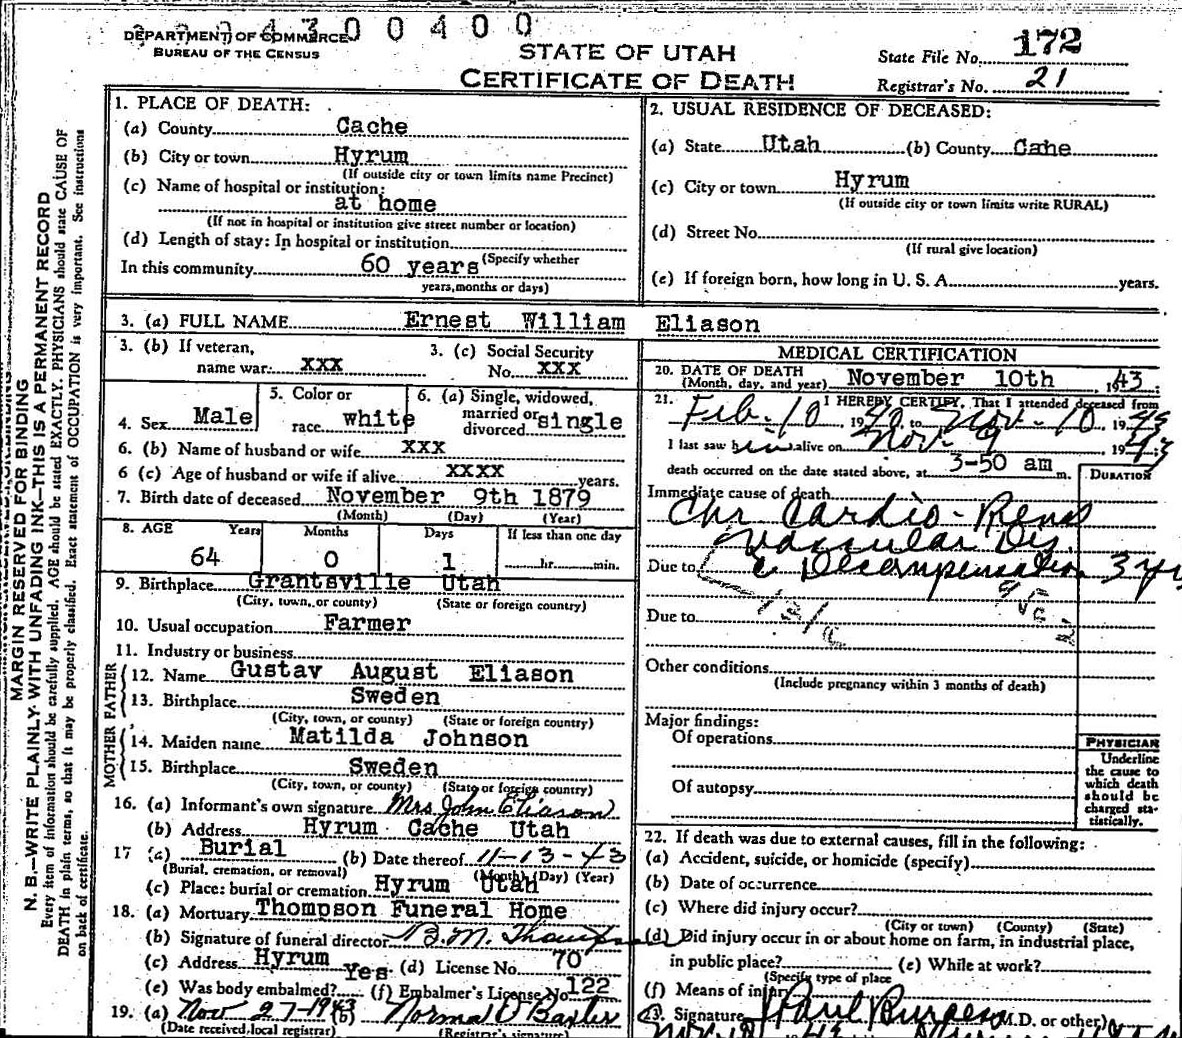 DEPARTMENT OF COMMERCE
BUREAU OF THE CENSUS
0 0 4 0 0
STATE OF UTAH
CERTIFICATE OF DEATH
State File No. 172
Registrar's No. 21
MARGIN RESERVED FOR BINDING
N. B.—WRITE PLAINLY WITH UNFADING INK—THIS IS A PERMANENT RECORD
Every item of information should be carefully supplied. AGE should be stated EXACTLY. PHYSICIANS should state CAUSE OF
DEATH in plain terms, so that it may be properly classified. Exact statement of OCCUPATION is very important. See instructions
on back of certificate.
1. PLACE OF DEATH:
(a) County Cache
(b) City or town Hyrum
(If outside city or town limits name Precinct)
(c) Name of hospital or institution:
at home
(If not in hospital or institution give street number or location)
(d) Length of stay: In hospital or institution
(Specify whether
In this community 60 years
years, months or days)
2. USUAL RESIDENCE OF DECEASED:
(a) State Utah (b) County Cahe
(c) City or town Hyrum
(If outside city or town limits write RURAL)
(d) Street No.
(If rural give location)
(e) If foreign born, how long in U. S. A. years.
3. (a) FULL NAME Ernest William Eliason
3. (b) If veteran,
name war: XXX
3. (c) Social Security
No. XXX
4. Sex Male
5. Color or
race white
6. (a) Single, widowed,
married or
divorced single
6. (b) Name of husband or wife XXX
6 (c) Age of husband or wife if alive XXXX years.
7. Birth date of deceased November 9th 1879
(Month) (Day) (Year)
8. AGE Years Months Days If less than one day
64 0 1 hr. min.
9. Birthplace Grantsville Utah
(City, town, or county) (State or foreign country)
10. Usual occupation Farmer
11. Industry or business
FATHER
12. Name Gustav August Eliason
13. Birthplace Sweden
(City, town, or county) (State or foreign country)
MOTHER
14. Maiden name Matilda Johnson
15. Birthplace Sweden
(City, town, or county) (State or foreign country)
16. (a) Informant's own signature Mrs John Eliason
(b) Address Hyrum Cache Utah
17 (a) Burial (b) Date thereof 11-13-43
(Burial, cremation, or removal) (Month) (Day) (Year)
(c) Place: burial or cremation Hyrum Utah
18. (a) Mortuary Thompson Funeral Home
(b) Signature of funeral director B. M. Thompson
(c) Address Hyrum (d) License No. 70
(e) Was body embalmed? Yes (f) Embalmer's License No. 122
19. (a) Nov 27-1943 (b) Norma O Baxter
(Date received, local registrar) (Registrar's signature)
MEDICAL CERTIFICATION
20. DATE OF DEATH
(Month, day, and year) November 10th, 1943
21. I HEREBY CERTIFY, That I attended deceased from
Feb. 10 1940, to Nov-10, 1943
I last saw him alive on Nov. 9 1943
death occurred on the date stated above, at 3-50 am m.
DURATION
Immediate cause of death
Chr Cardio-Renal
Vascular Dis.
Due to c Decompensation 3 yr
95c
131a
Due to
Other conditions
(Include pregnancy within 3 months of death)
Major findings:
Of operations
Of autopsy
PHYSICIAN
Underline
the cause to
which death
should be
charged sta-
tistically.
22. If death was due to external causes, fill in the following:
(a) Accident, suicide, or homicide (specify)
(b) Date of occurrence
(c) Where did injury occur?
(City or town) (County) (State)
(d) Did injury occur in or about home on farm, in industrial place,
in public place? (e) While at work?
(Specify type of place
(f) Means of injury
23. Signature Paul Burgess (M.D. or other)